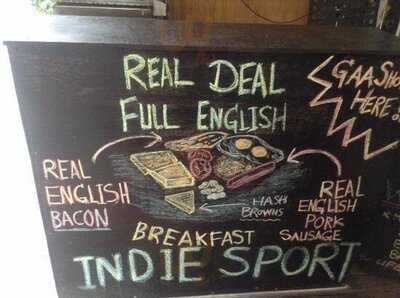 REAL DEAL
FULL ENGLISH
GAA SHO
HERE
REAL
ENGLISH
BACON
HASH
BROWNS
REAL
ENGLISH
PORK
SAUSAGE
BREAKFAST
INDIE SPORT